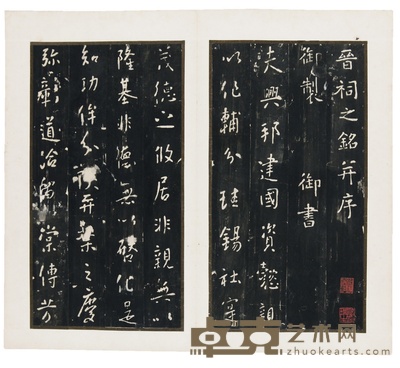 晉祠之銘并序
御製 御書
夫興邦建國資懿親
以作輔分珪錫社實
茂德之攸居非親無以
隆基非德無以啓化是
知功侔分陝奕葉之慶
弥彰道洽留棠傳芳
卓克艺术网
www.zhuokearts.com